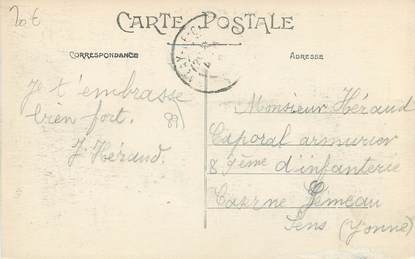 20 €
CARTE POSTALE
CORRESPONDANCE
ADRESSE
Je t'embrasse
bien fort.
J Héraud.
89
Monsieur Héraud
Caporal armurier
89ème d'infanterie
Caserne Gémeau
Sens (Yonne)